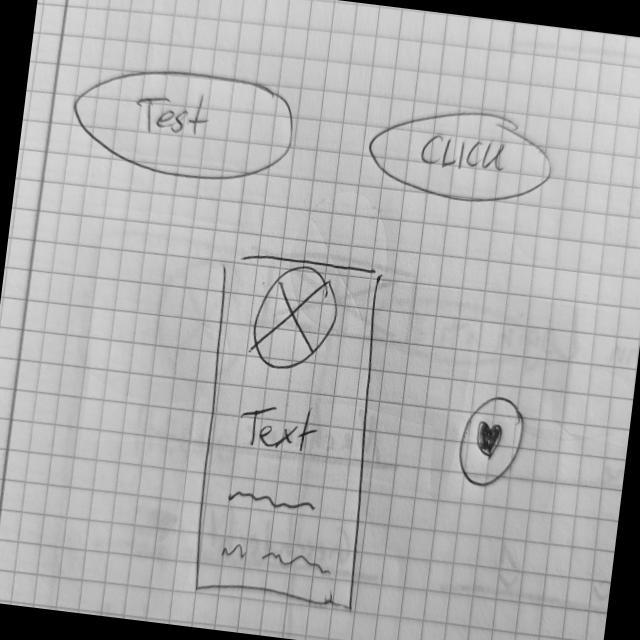 Test
CLICK
Text